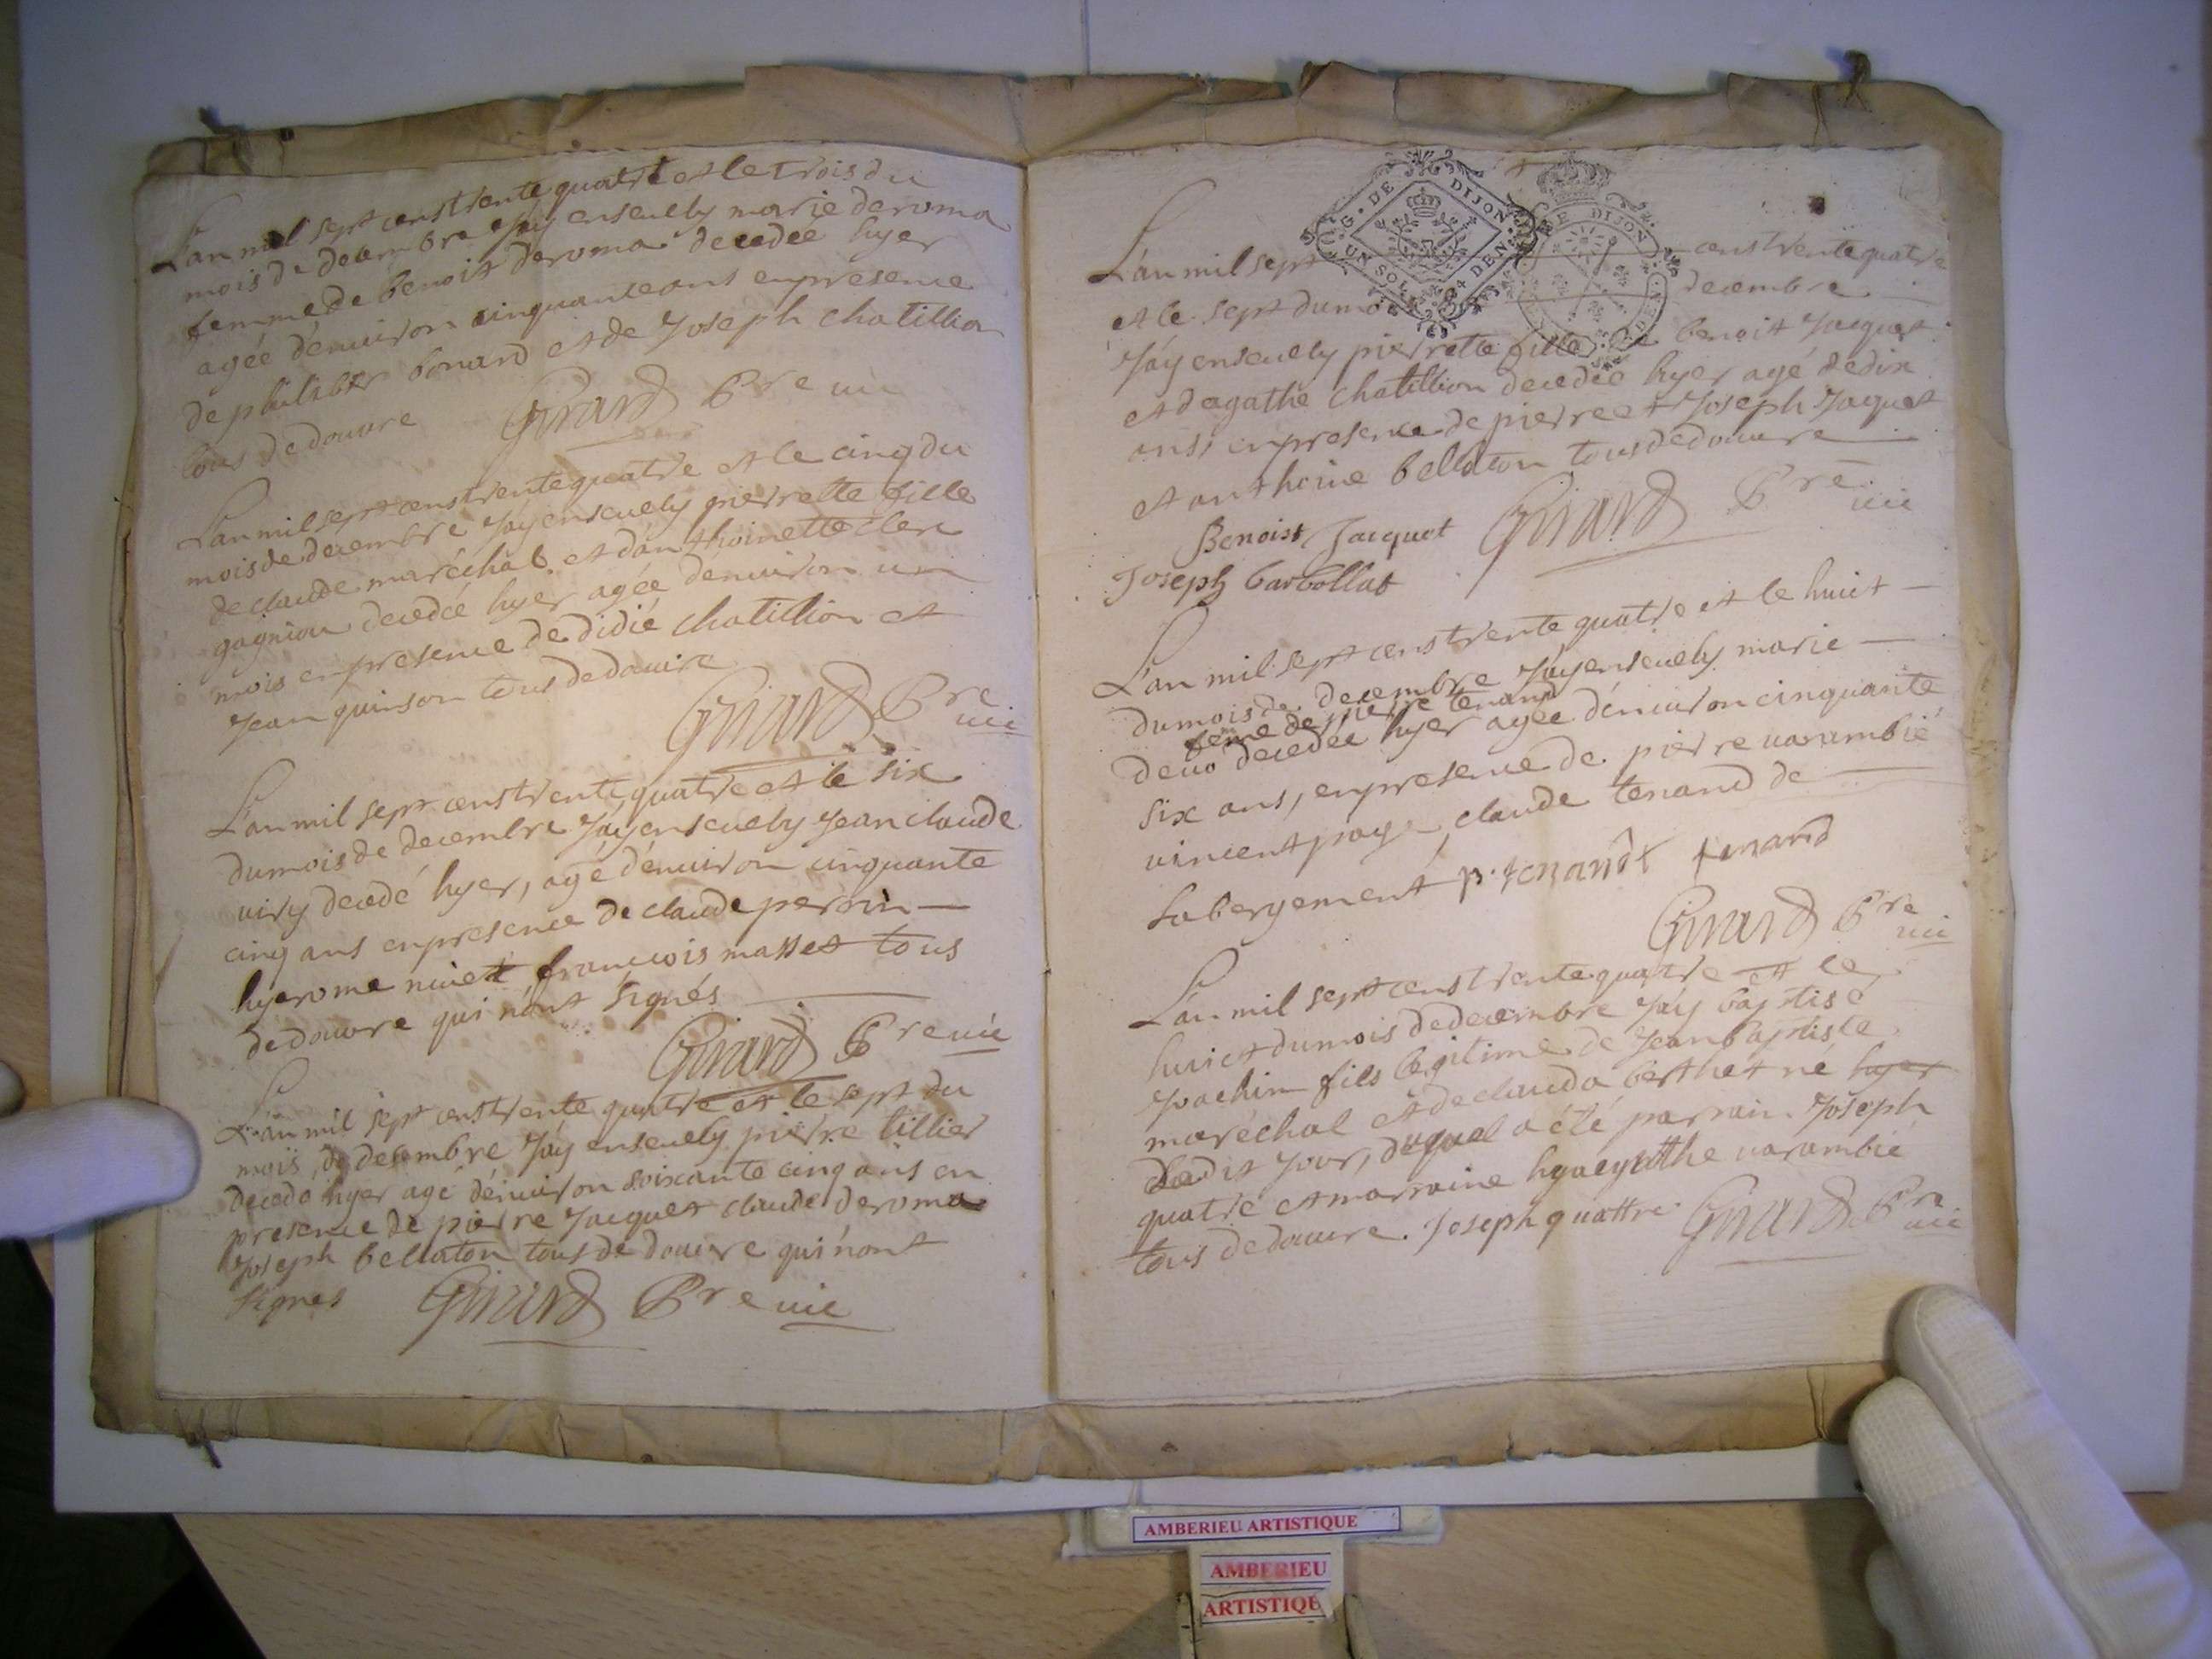 L'an mil sept cens trente quatre et le trois du
mois de decembre j'ay enseuely marie deroma
femme de benoist deroma decedée hyer
agée dénuiron cinquante ans en presence
de philiber bonard et de Joseph chatillion
tous de douure Girard Pre uic
L'an mil sept cens trente quatre et le cinq du
mois de decembre j'ay enseuely pierrette fille
de claude maréchal et d'anthoinette clerc
gagnion decedée hyer agée denuiron un
mois en presence de didié chatillion et
Jean quinson tous de douure
Girard Pre uic
L'an mil sept cens trente quatre et le six
du mois de decembre j'ay enseuely Jean claude
uiry decedé hyer, agé dénuiron cinquante
cinq ans en presence de claude perrin
hyerome niuet francois masset tous
de douure qui n'ont signés
Girard Pre uic
L'an mil sept cens trente quatre et le sept du
mois de decembre j'ay enseuely pierre tillier
decedé hyer agé dénuiron soixante cinq ans en
presence de pierre Jacquet claude deroma
Joseph bellaton tous de douure qui n'ont
signes Girard Pre uic
G. DE DIJON
UN SOL 4 DEN.
DE DIJON
DEN.
L'an mil sept cens trente quatre
et le sept du mois decembre
j'ay enseuely pierrette fille de benoit Jacquet
et d'agathe chatillion decedée hyer agé de dix
ans, en presence de pierre et Joseph Jaquet
et anthoine bellaton tous de douure
Benoist Jacquet Girard Pre uic
Joseph barbollat
L'an mil sept cens trente quatre et le huict
du mois de decembre j'ay enseuely marie
feme de pierre tenand
deuo decedée hyer agée dénuiron cinquante
six ans, en presence de pierre uarambié
uincent page, claude tenand de
labergement p. tenand tenand
Girard Pre uic
L'an mil sept cens trente quatre et le
huict du mois de decembre j'ay baptisé
Joachim fils legitime de Jean baptiste
maréchal et de clauda berthet né hyer
ledit jour, duquel a été parrain Joseph
quatre et marraine hyacynthe uarambié
tous de douure. Joseph quattre Girard Pre uic
AMBERIEU ARTISTIQUE
AMBERIEU
ARTISTIQUE